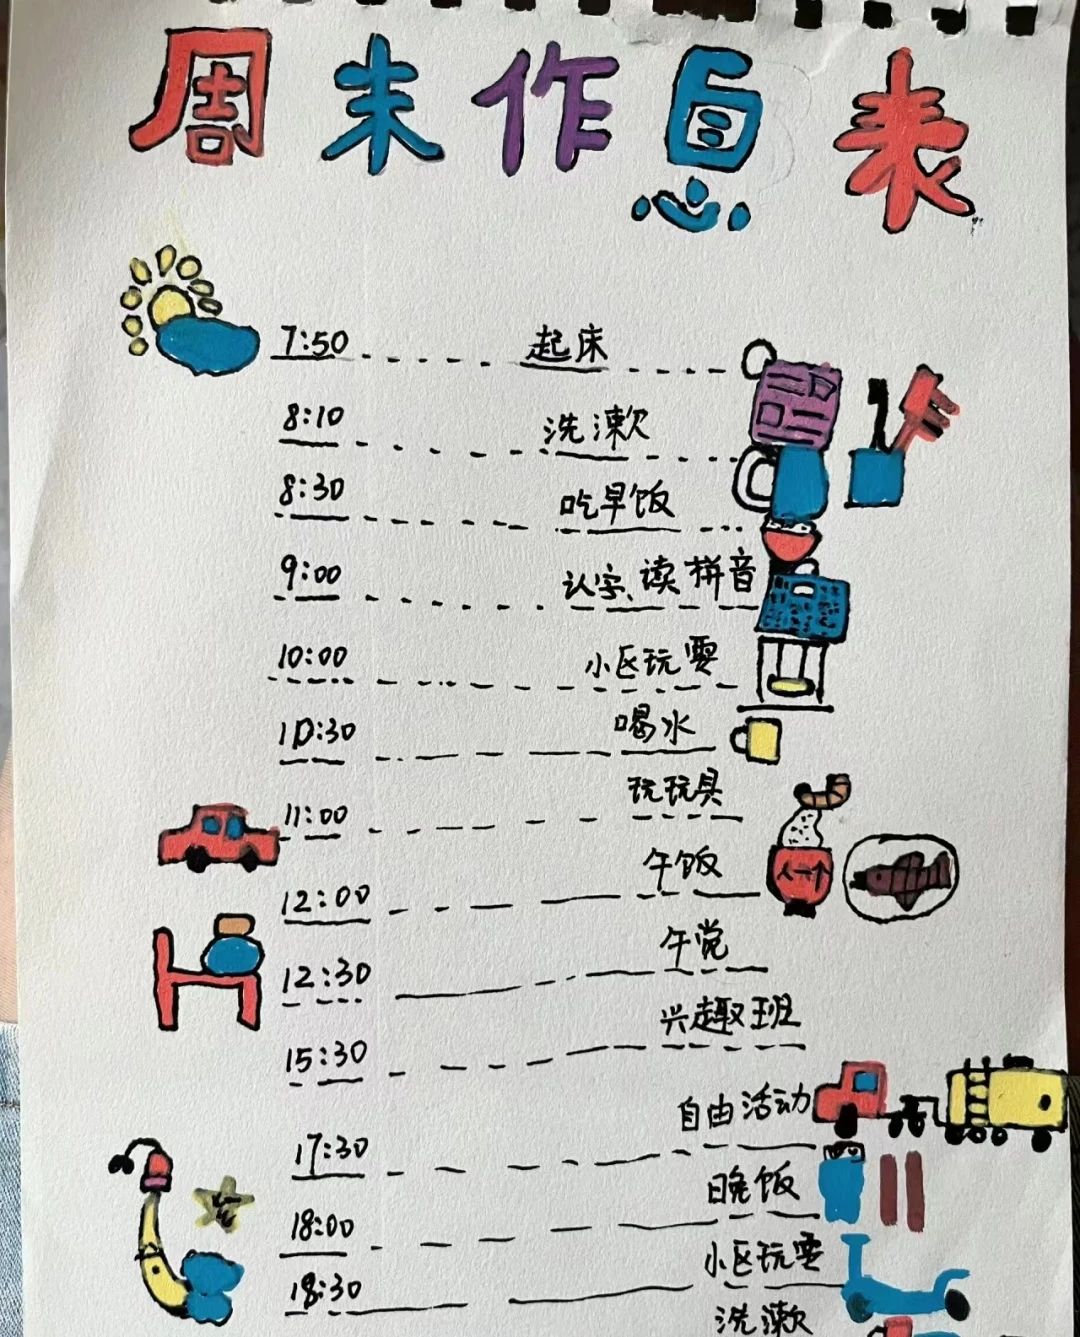 周末作息表
7:50 起床
8:10 洗漱
8:30 吃早饭
9:00 认字、读拼音
10:00 小区玩耍
10:30 喝水
11:00 玩玩具
12:00 午饭
12:30 午觉
15:30 兴趣班
17:30 自由活动
18:00 晚饭
18:30 小区玩耍
洗漱